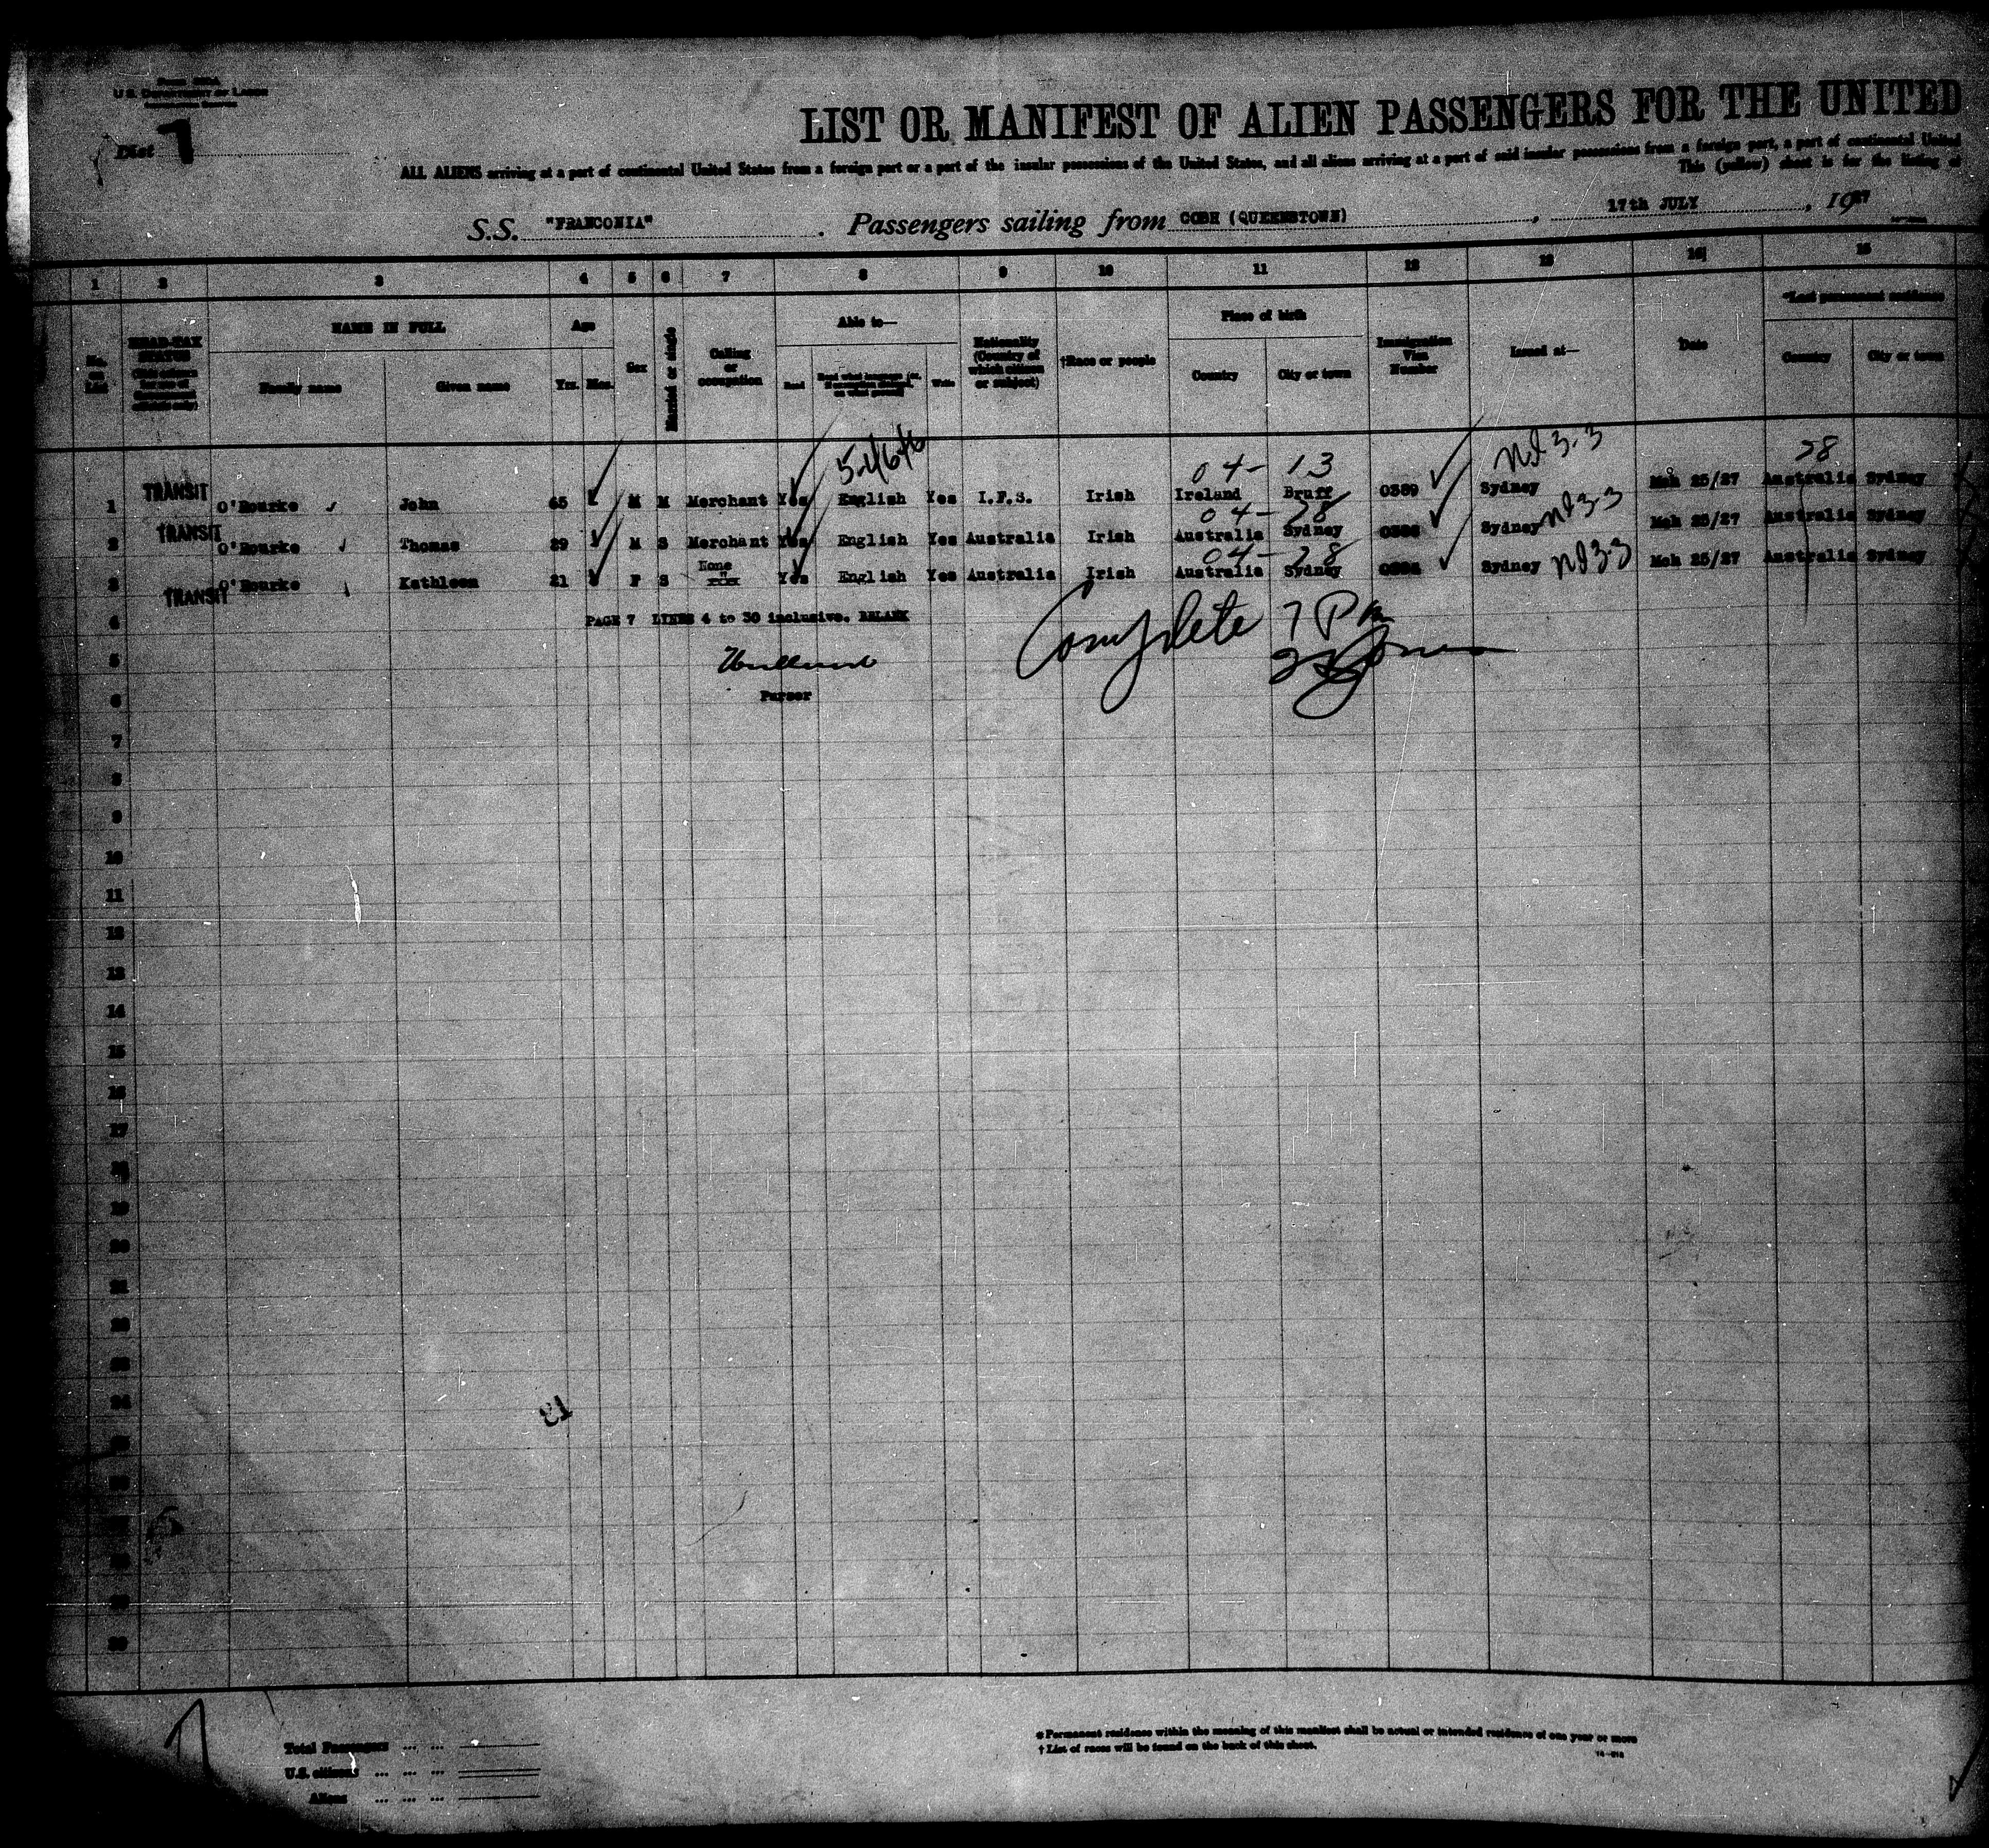 U.S. DEPARTMENT OF LABOR
List 7
LIST OR MANIFEST OF ALIEN PASSENGERS FOR THE UNITED
ALL ALIENS arriving at a port of continental United States from a foreign port or a port of the insular possessions of the United States, and all aliens arriving at a port of said insular possessions from a foreign port, a port of continental United
This (yellow) sheet is for the listing of
S.S. "FRANCONIA" Passengers sailing from COBH (QUEENSTOWN), 17th JULY, 1927
1 2 3 4 5 6 7 8 9 10 11 12 13 14 15
No. on List
HEAD-TAX STATUS
NAME IN FULL
Family name
Given name
Age
Yrs. Mos.
Sex
Married or single
Calling or occupation
Able to—
Read
Write
Nationality (Country of which citizen or subject)
†Race or people
Place of birth
Country
City or town
Immigration Visa Number
Issued at—
Date
*Last permanent residence
Country
City or town
04-13
28
1 TRANSIT O'Rourke John 65 M M Merchant Yes English Yes I.F.S. Irish Ireland Bruff 0389 Sydney Mch 25/27 Australia Sydney
04-28
2 TRANSIT O'Rourke Thomas 29 M S Merchant Yes English Yes Australia Irish Australia Sydney Sydney Mch 25/27 Australia Sydney
04-28
3 TRANSIT O'Rourke Kathleen 21 F S None Yes English Yes Australia Irish Australia Sydney Sydney Mch 25/27 Australia Sydney
4 PAGE 7 LINES 4 to 30 inclusive. BLANK
Complete 7 Pm
5
6 Purser
7
8
9
10
11
12
13
14
15
16
17
18
19
20
21
22
23
24
13
25
26
27
28
29
30
Total Passengers ... ...
U.S. citizens ... ... ...
Aliens ... ... ...
*Permanent residence within the meaning of this manifest shall be actual or intended residence of one year or more
†List of races will be found on the back of this sheet.